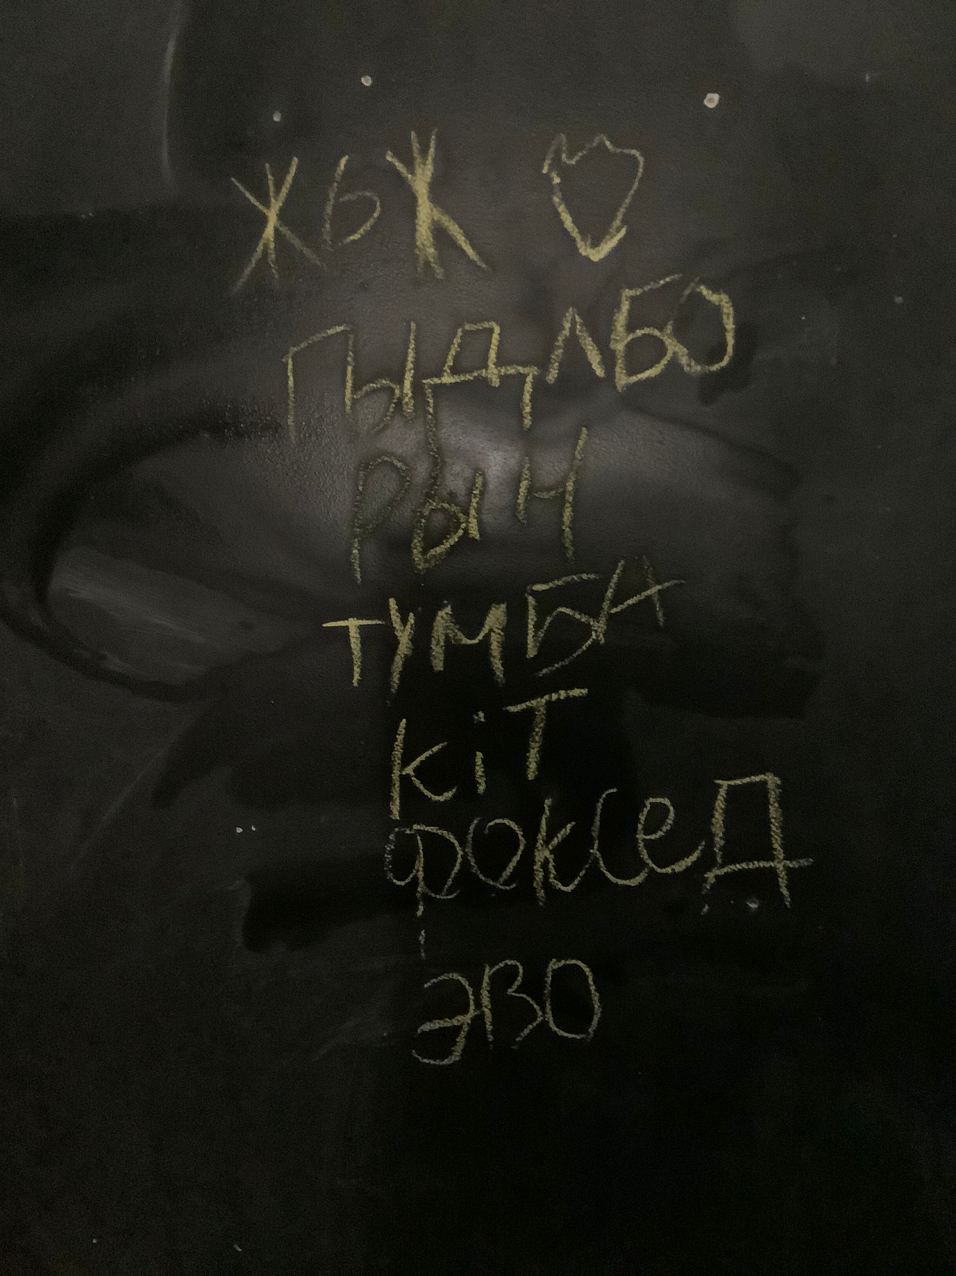 ЖЬЖ
ГЫДЛБО
РЫЧ
ТУМБА
кіТ
ФОКСЕД
ЭВО